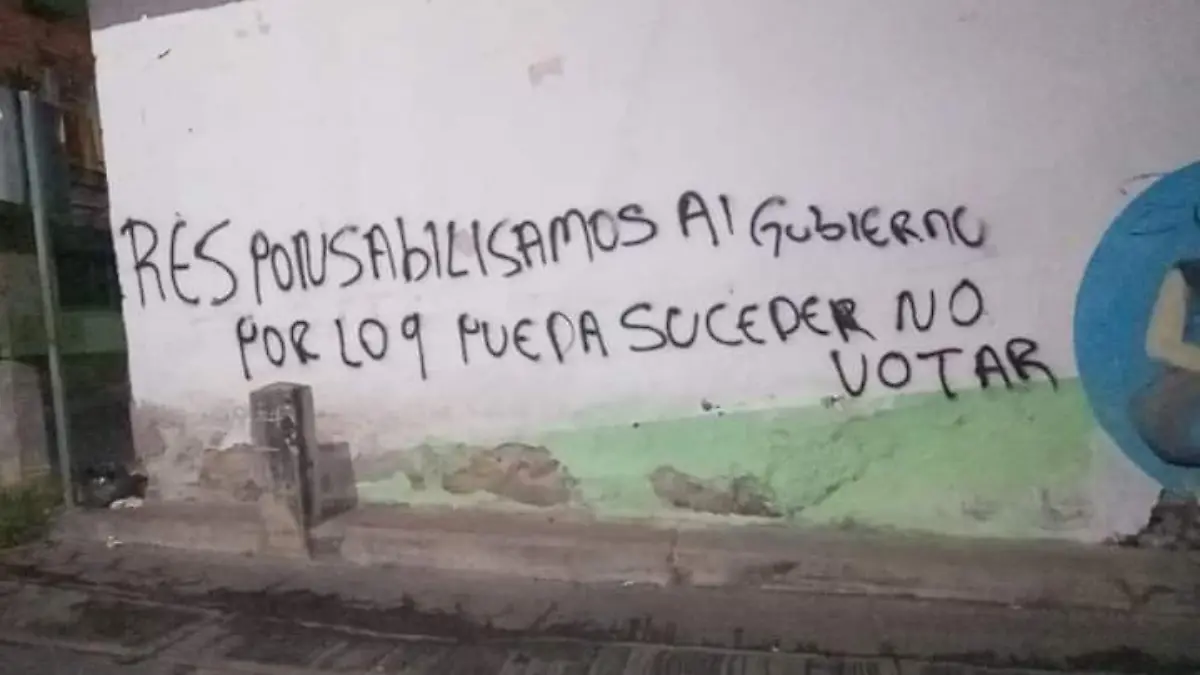 RESPONSAbILISAMOS Al GubiERNO
POR LO q PUEDA SUCEDER NO
VOTAR